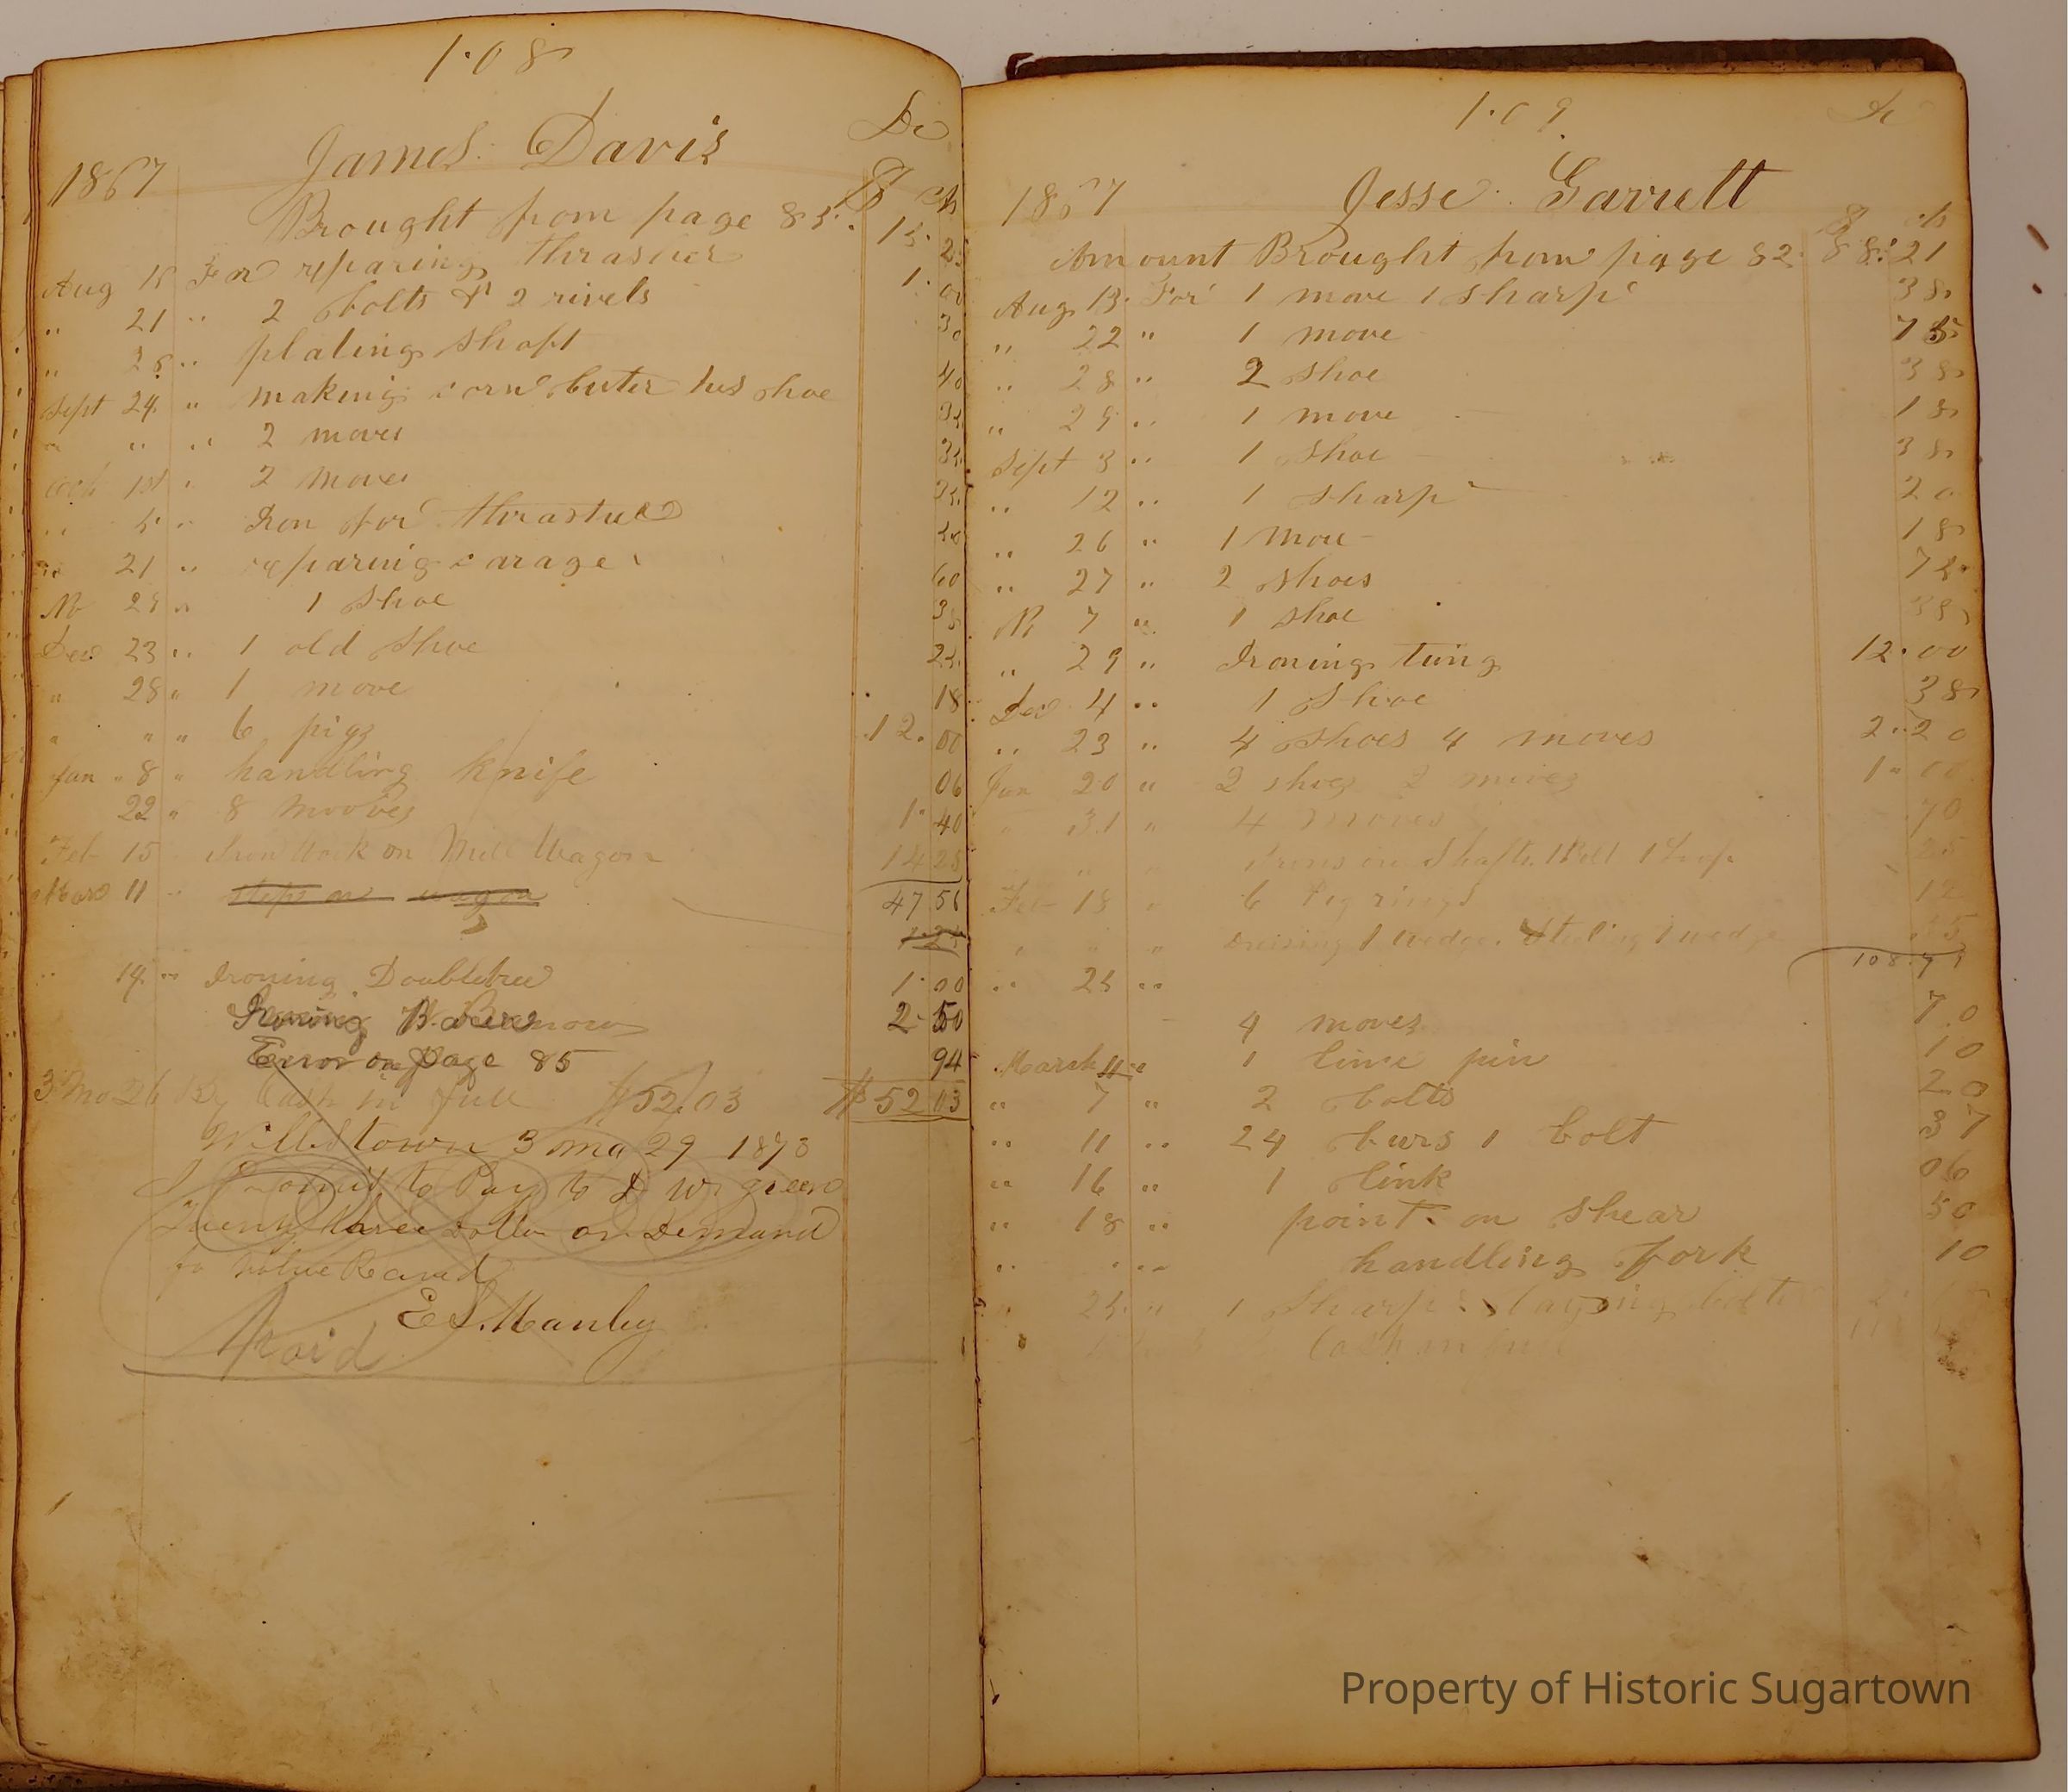 108
James Davis Dr
1867 $ cts
Brought from page 85. 15.25
Aug 15 For reparing thrasher 1.00
" 21 " 2 bolts & 2 rivets 30
" 28 " plating shaft 40
Sept 24 " making corn cuter his shoe 35
" " " 2 moves 35
1st " 2 moves 35
" 5 " Iron for 50
" 21 " reparing carage 60
No 29 " 1 shoe 38
Dec 23 " 1 old shoe 25
" 28 " 1 move 18
" " " 6 pigs 12.00
Jan " 8 " handling knife 06
22 " 8 mooves 1.40
Feb 15 Iron Work on Wagon 14 25
11 " steps on wagon 47 56
1.25
" 14 " Ironing Doubletree 1.00
Ironing 2.50
Error on page 85 94
3 mo 26 By Cash in full $52.03 $52 03
Willistown 3 mo 29 1873
I Promis to Pay to I W green
Twenty three Dollar on Demand
fo value
E S. Manley
Paid
109
Dr
1867 Jesse Garrett
$ cts
Amount Brought from page 82. 88.21
Aug 13. For 1 move 1 sharp 38
" 22 " 1 move 75
" 28 " 2 shoe 38
" 29 " 1 move 18
Sept 3 " 1 shoe 38
" 12 " 1 sharp 20
" 26 " 1 move 18
" 27 " 2 shoes 75
N 7 " 1 shoe 38
" 29 " Ironing tung 12.00
Dec 4 " 1 shoe 38
" 23 " 4 shoes 4 moves 2.20
Jan 20 " 2 shoes 2 moves 1.00
" 31 " 4 moves 70
" " " Irons on Shafts. 1 Bolt 1 25
Feb 18 " 6 Pig rings 12
" " " 1 wedge. Steeling 1 wedge
108.7
" 25 "
4 moves 70
March 11 " 1 line pin 10
" 7 " 2 bolts 20
" 11 " 24 burs 1 bolt 37
" 16 " 1 link 06
" 18 " point on shear 50
" " " handling fork 10
" 25 " 1 sharp bolt
Cash in full
Property of Historic Sugartown